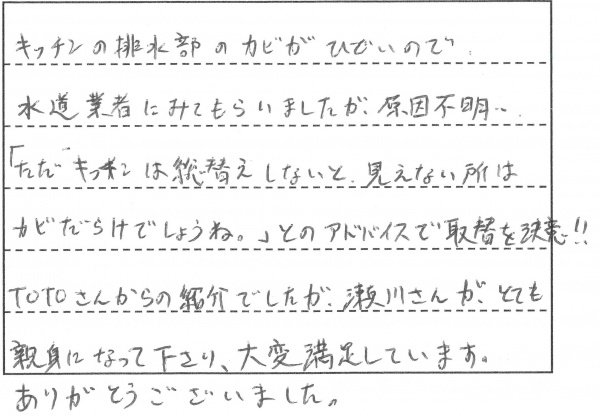 キッチンの排水部のカビがひどいので
水道業者にみてもらいましたが、原因不明…
「ただキッチンは総替えしないと、見えない所は
カビだらけでしょうね。」とのアドバイスで取替を決意!!
TOTOさんからの紹介でしたが、瀬川さんが、とても
親身になって下さり、大変満足しています。
ありがとうございました。